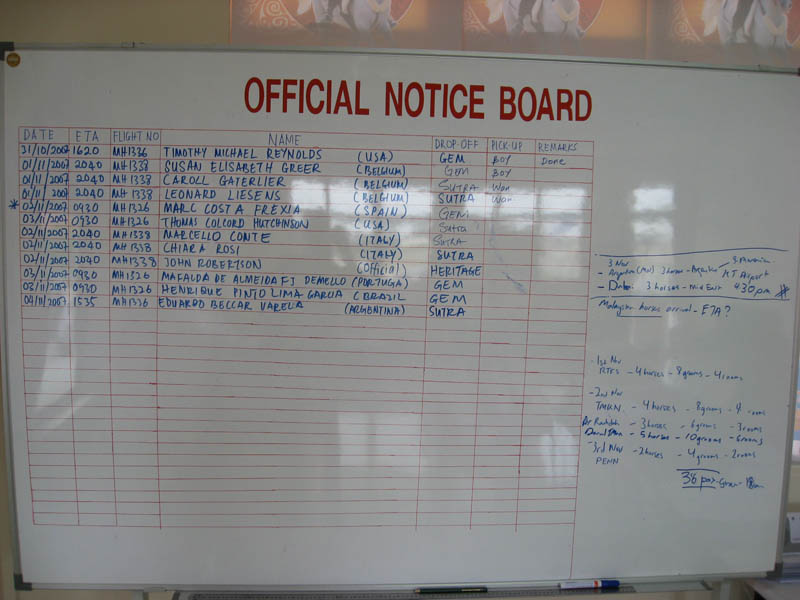 OFFICIAL NOTICE BOARD
DATE ETA FLIGHT NO NAME DROP-OFF PICK-UP REMARKS
31/10/2007 1620 MH1336 TIMOTHY MICHAEL REYNOLDS (USA) GEM BOY Done
01/11/2007 2040 MH1338 SUSAN ELISABETH GREER (BELGIUM) GEM BOY
01/11/2007 2040 MH1338 CAROLL GATERLIER (BELGIUM) SUTRA Wan
01/11/2007 2040 MH1338 LEONARD LIESENS (BELGIUM) SUTRA Wan
* 03/11/2007 0930 MH1326 MARC COSTA FREXIA (SPAIN) GEM
03/11/2007 0930 MH1326 THOMAS COLCORD HUTCHINSON (USA) Sutra
02/11/2007 2040 MH1338 MARCELLO CONTE (ITALY) SUTRA
02/11/2007 2040 MH1338 CHIARA ROSI (ITALY) SUTRA
02/11/2007 2040 MH1338 JOHN ROBERTSON (Official) HERITAGE
03/11/2007 0930 MH1326 MAFALDA DE ALMEIDA FJ DEMELLO (PORTUGA) GEM
03/11/2007 0930 MH1326 HENRIQUE PINTO LIMA GARCIA (BRAZIL GEM
04/11/2007 1535 MH1336 EDUARDO BECCAR VARELA (ARGENTINA) SUTRA
3 Nov
3 horses KT Airport
3 horses - Mid East 430pm *
Malaysian horses arrival - ETA?
- 1st Nov
RTES - 4 horses - 8 grooms - 4 rooms
- 2nd Nov
- 4 horses - 8 grooms - 4 rooms
- 3 horses - 6 grooms - 3 rooms
- 5 horses - 10 grooms - 6 rooms
- 3rd Nov - 2 horses - 4 grooms - 2 rooms
PENN
36 pax